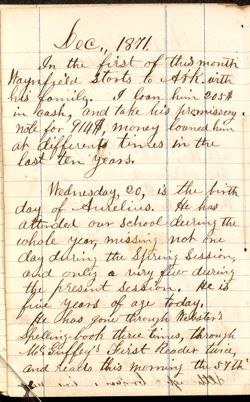 Dec., 1871.
In the first of this month
Waynfield starts to Ark. with
his family. I loan him 205$
in cash, and take his promissory
note for 914$, money loaned him
at different times in the
last ten years.
Wednesday, 20, is the birth
day of Aurelius. He has
attended our school during the
whole year, missing not one
day during the Spring Session,
and only a very few during
the present session. He is
five years of age today.
He has gone through Webster's
Spelling-book three times, through
McGuffey's First Reader twice,
and reads this morning the 57th